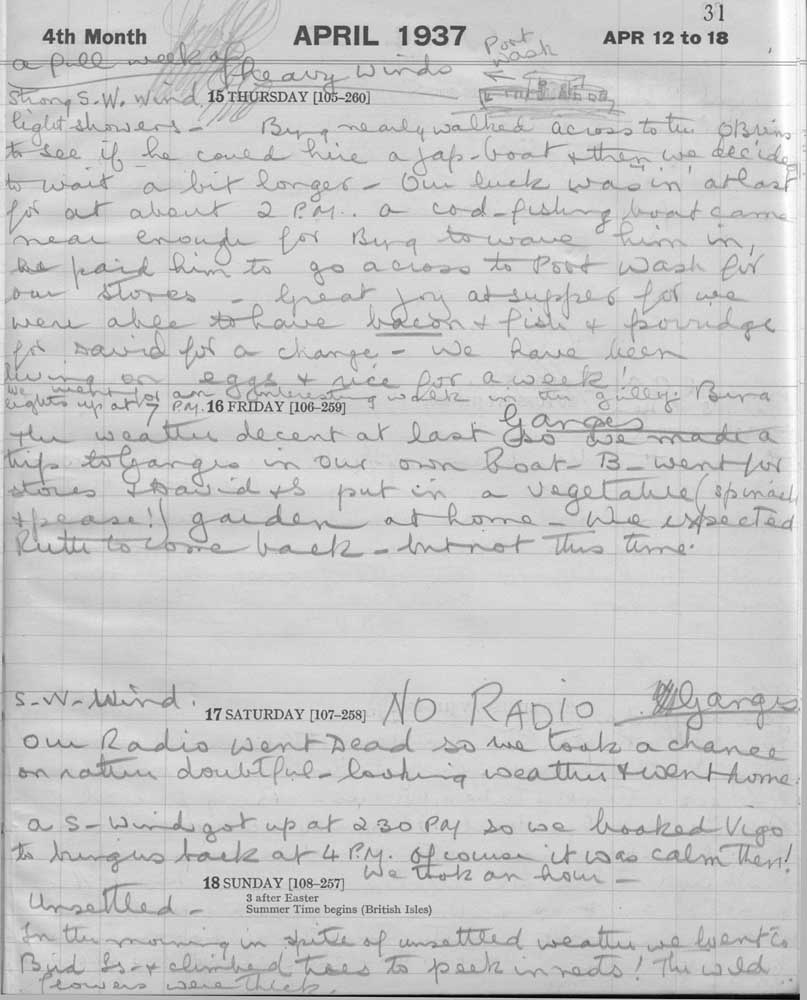 31
4th Month APRIL 1937 APR 12 to 18
Port Wash
a full week of heavy winds
Strong S.W. Wind 15 THURSDAY [105-260]
light showers - nearly walked across to the OBriens
to see if he could hire a Jap-boat & then we decided
to wait a bit longer - Our luck was "in" at last
for at about 2 P.M. a cod-fishing boat came
near enough for to wave him in,
he paid him to go across to Port Wash for
our stores - Great Joy at supper for we
were able to have bacon & fish & porridge
for David for a change - We have been
living on eggs & rice for a week!
We went for an interesting walk in the gully.
lights up at 7 P.M. 16 FRIDAY [106-259]
Ganges
The weather decent at last so we made a
trip to Ganges in our own Boat - B - went for
stores & David & I put in a vegetable (spinach
& pease!) garden at home - We expected
Ruth to come back - but not this time.
S-W-Wind. 17 SATURDAY [107-258] NO RADIO Ganges
Our Radio went Dead so we took a chance
on rather doubtful-looking weather & went home.
a S-Wind got up at 2 30 PM so we hooked Vigo
to bring us back at 4 P.M. Of course it was calm then!
We took an hour -
18 SUNDAY [108-257]
Unsettled - 3 after Easter
Summer Time begins (British Isles)
In the morning in spite of unsettled weather we went to
Bird Is - & climbed trees to peek in nests! The wild
flowers were thick.